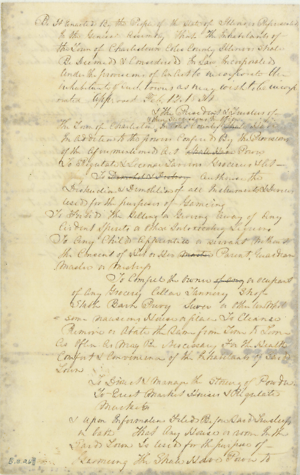 Be it enacted By the People of the State of Illinois Represented
in the General Assembly That the Inhabitants of
the Town of Charleston Coles County Illinois Shall
Be Deemed & Considered In Law Incorporated
Under the provisions of
inhabitants of such towns as may wish to be incorp
orated Approved
& The President & Trustees of
The Town of Charleston
in addition to the powers confered by the provisions
of the aforementioned Act Shall Have Power
To Regulate & License Taverns Groceries
Authorise the
Destruction & Demolition of all Instruments & Devices
used for the purposes of Gaming
To Prohibit the Selling or Giving Away of any
Ardent Spirits or other Intoxicating Liquors
To Any Child Apprentice or Servant without
the Consent of his or her Parent Guardian
Master or Mistress
To Compel the owner or occupant
of any Grocery Cellar Tannery Shop
Stable Barn Privy Sewer or other unwholesome
or nauseous House or place To Cleanse
Remove or Abate the Same from Time to Time
As often as May Be Necessary For the Health
Comfort & Convenience of the Inhabitants of Said
Town
To Direct & Manage the Storing of Powder
To Erect Market Houses & Regulate
Markets
& upon Information Filed Before Said Trustees
on oath That Any House or room in the
Said Town Is used for the purpose of
Gaming